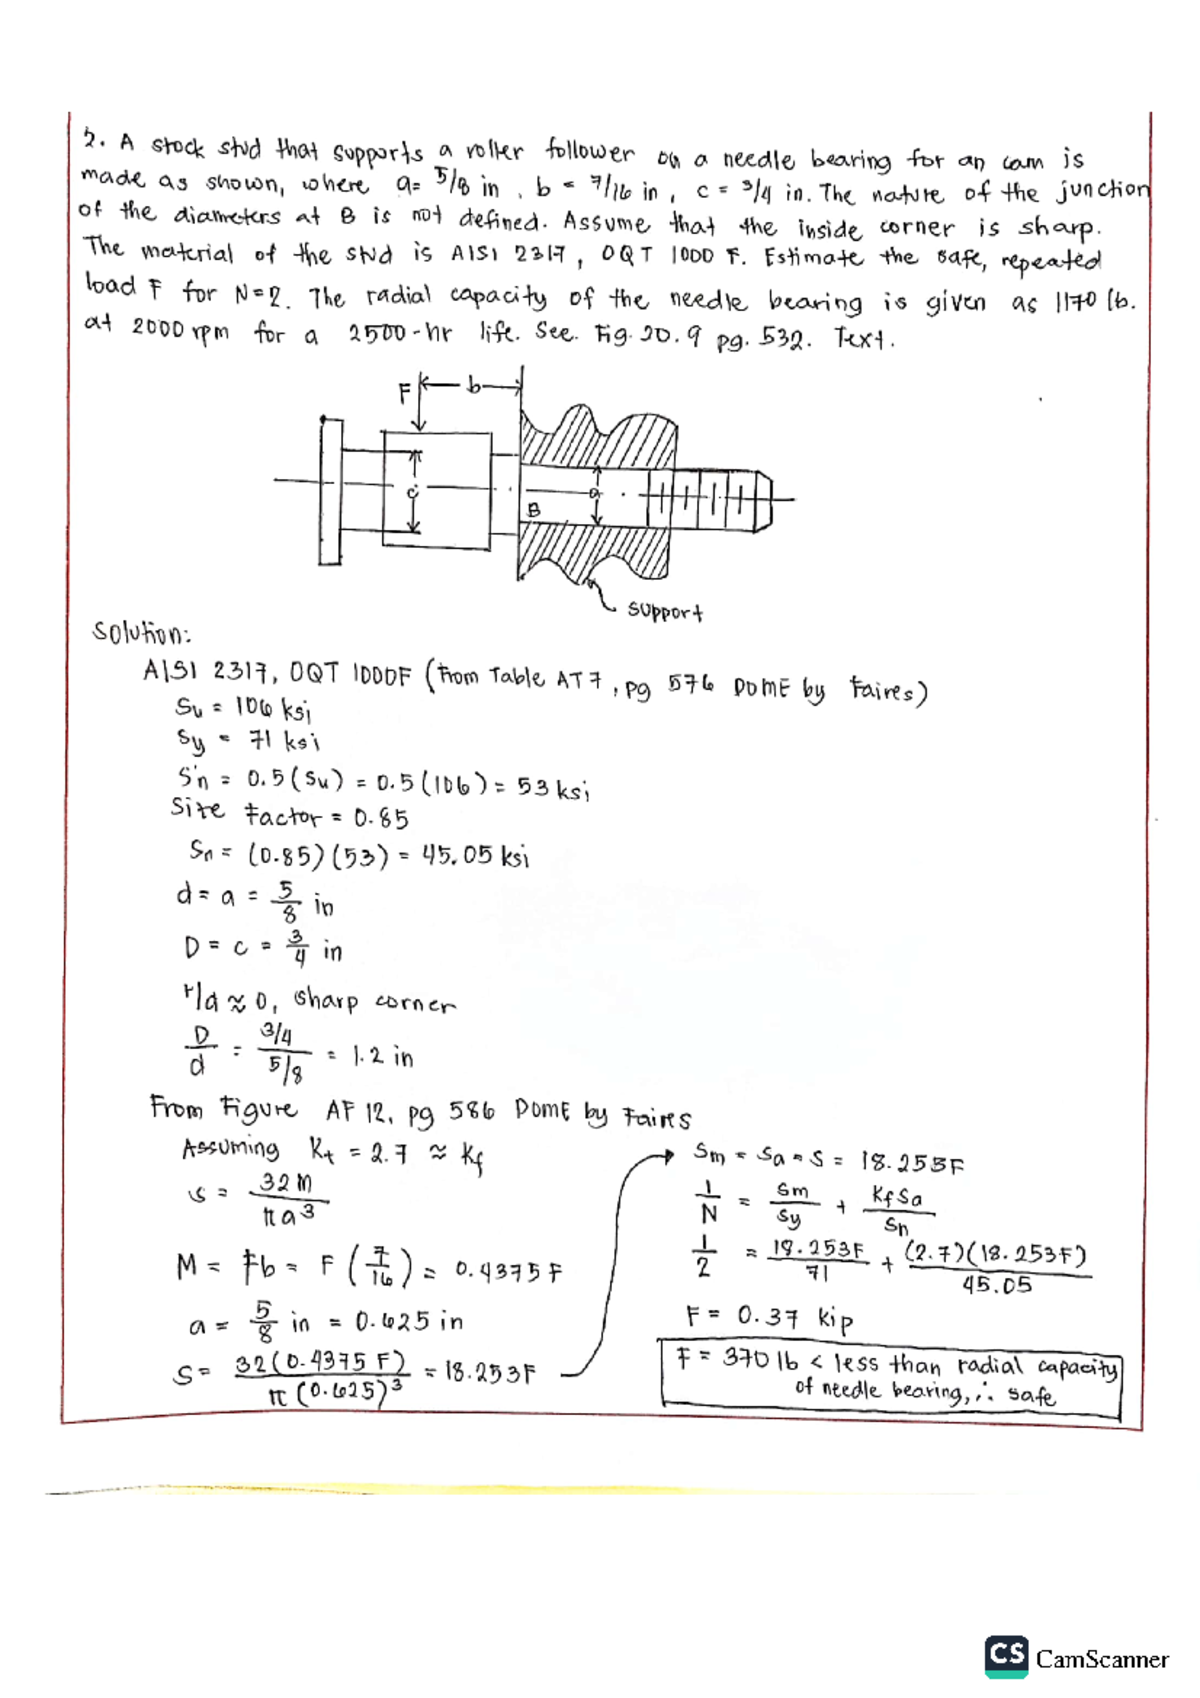 2. A stock stud that supports a roller follower on a needle bearing for an cam is
made as shown, where a= 5/8 in , b = 7/16 in , c = 3/4 in. The nature of the junction
of the diameters at B is not defined. Assume that the inside corner is sharp.
The material of the stud is AISI 2317, OQT 1000 F. Estimate the safe, repeated
load F for N=2. The radial capacity of the needle bearing is given as 1170 lb.
at 2000 rpm for a 2500-hr life. See. Fig. 20.9 pg. 532. Text.
F b
c a
B
support
Solution:
AISI 2317, OQT 1000F (From Table AT7, pg 576 DOME by Faires)
Su = 106 ksi
Sy = 71 ksi
S'n = 0.5(Su) = 0.5(106) = 53 ksi
Size Factor = 0.85
Sn = (0.85)(53) = 45.05 ksi
d = a = 5/8 in
D = c = 3/4 in
r/d ≈ 0, sharp corner
D/d = 3/4 / 5/8 = 1.2 in
From Figure AF 12, pg 586 DOME by Faires
Assuming Kt = 2.7 ≈ Kf
s = 32M / πa³
M = Fb = F (7/16) = 0.4375F
a = 5/8 in = 0.625 in
S = 32(0.4375 F) / π(0.625)³ = 18.253F
Sm = Sa = S = 18.253F
1/N = Sm/Sy + KfSa/Sn
1/2 = 18.253F/71 + (2.7)(18.253F)/45.05
F = 0.37 kip
F = 370 lb < less than radial capacity
of needle bearing, ∴ safe
CS CamScanner